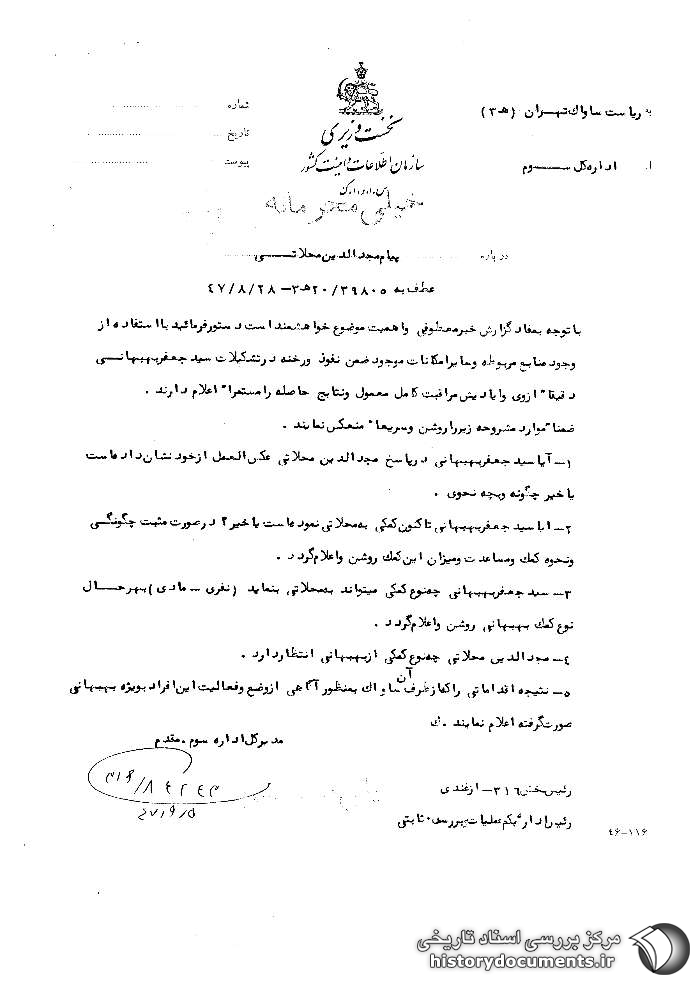 به ریاست ساواک تهران (ه‍ ۳)
شماره
نخست وزیری
تاریخ
از اداره کل سوم
سازمان اطلاعات و امنیت کشور
پیوست
س.ا.و.ا.ک
خیلی محرمانه
درباره پیام مجدالدین محلاتی
عطف به ۲۰/۳۹۸۰۵ه‍۳ – ۴۷/۸/۲۸
با توجه بمفاد گزارش خبر معطوفی و اهمیت موضوع خواهشمند است دستور فرمائید با استفاده از
وجود منابع مربوطه و سایر امکانات موجود ضمن نفوذ و رخنه در تشکیلات سید جعفر بهبهانی
دقیقا" از وی و ایادیش مراقبت کامل معمول و نتایج حاصله را مستمرا" اعلام دارند .
ضمنا" موارد مشروحه زیر را روشن و سریعا" منعکس نمایند .
۱– آیا سید جعفر بهبهانی در پاسخ مجدالدین محلاتی عکس العمل از خود نشان داده است
یا خیر چگونه و بچه نحوی .
۲– ایا سید جعفر بهبهانی تاکنون کمکی به محلاتی نموده است یا خیر ؟ در صورت مثبت چگونگی
و نحوه کمک و مساعدت و میزان این کمک روشن و اعلام گردد .
۳– سید جعفر بهبهانی چه نوع کمکی میتواند به محلاتی بنماید (نفری – مادی) بهر حال
نوع کمک بهبهانی روشن و اعلام گردد .
۴– مجدالدین محلاتی چه نوع کمکی از بهبهانی انتظار دارد .
۵– نتیجه اقداماتی را که از طرف آن ساواک بمنظور آگاهی از وضع و فعالیت این افراد بویژه بهبهانی
صورت گرفته اعلام نمایند . ک
مدیر کل اداره سوم . مقدم
۳۱۶/۸۴۲۴۳
۴۷/۹/۵
رئیس بخش ۳۱۶ – ازغندی
رئیس اداره یکم عملیات و بررسی . ثابتی
۴۶–۱۱۶
مرکز بررسی اسناد تاریخی
historydocuments.ir